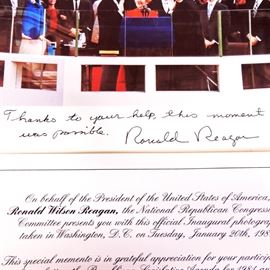 Thanks to your help, this moment
was possible. Ronald Reagan
On behalf of the President of the United States of America,
Ronald Wilson Reagan, the National Republican Congress
Committee presents you with this official Inaugural photogra
taken in Washington, D.C. on Tuesday, January 20th, 198
This special memento is in grateful appreciation for your particip